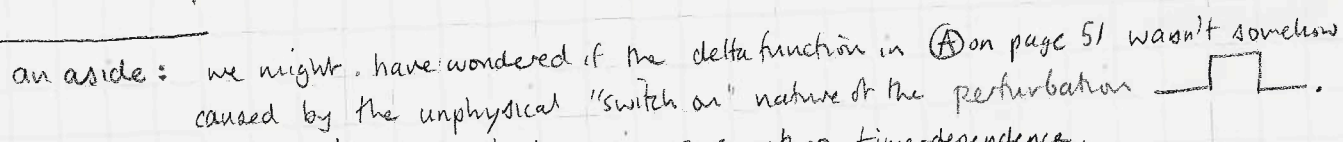 an aside: we might have wondered if the delta function in Ⓐ on page 51 wasn't somehow
caused by the unphysical "switch on" nature of the perturbation .
time-dependence.